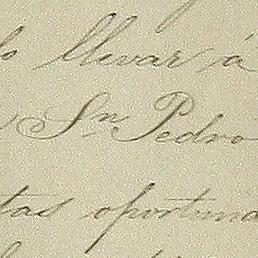 lo llevar á
Sn Pedro
tas oportuna